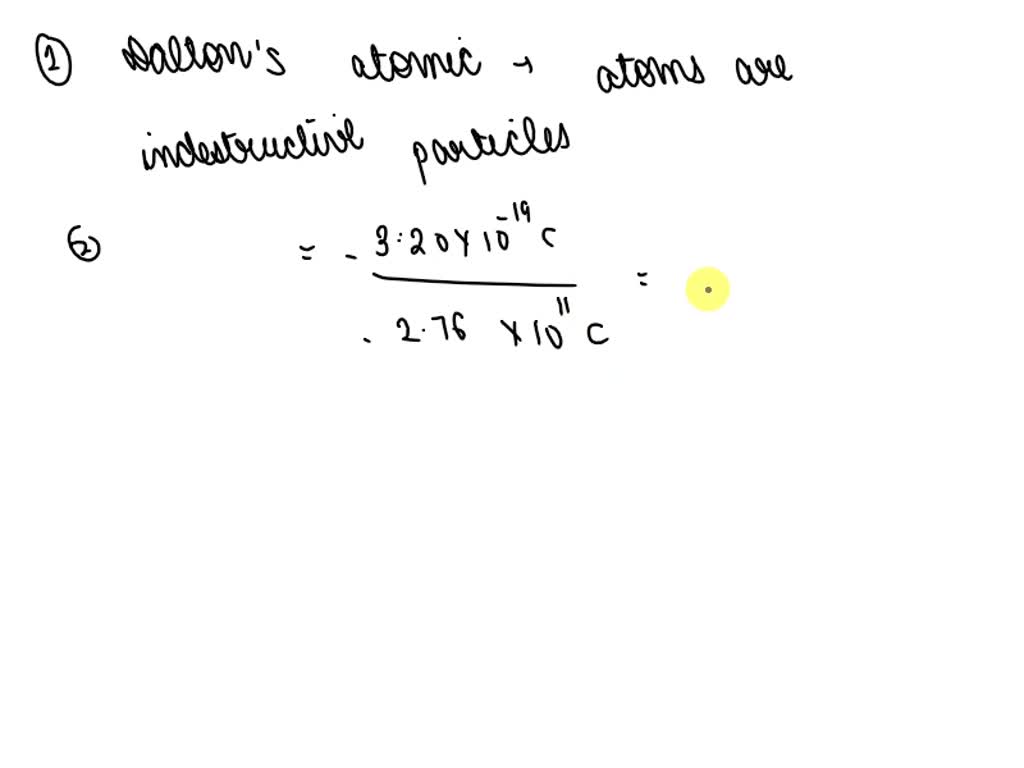 ① Dalton's atomic → atoms are
indestructive particles
② = - 3.20 × 10^-19 C / - 2.76 × 10^11 C =